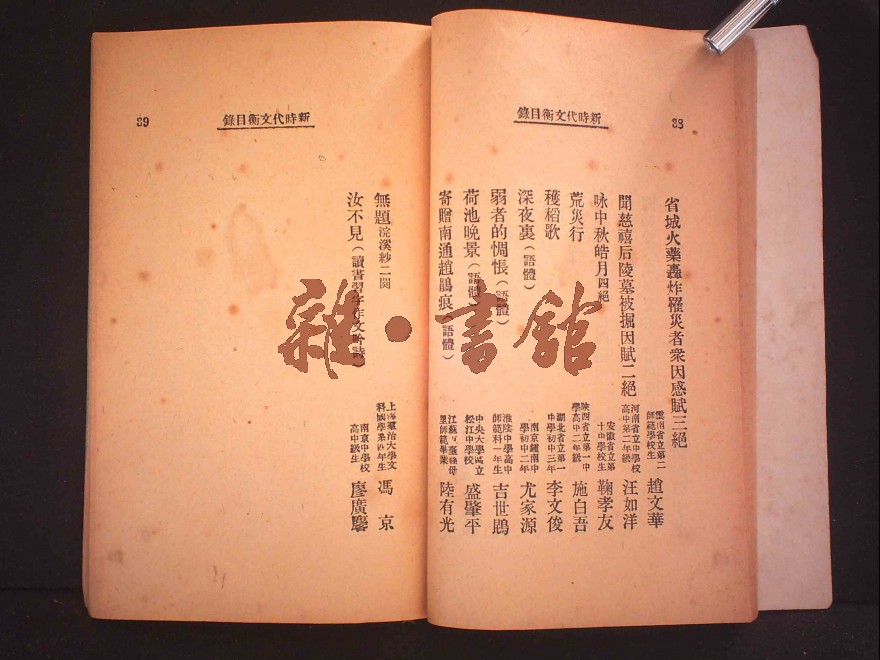 38
新時代文衡目錄
省城火藥轟炸罹災者衆因感賦三絕
雲南省立第二
師範學校生
趙文華
聞慈禧后陵墓被掘因賦二絕
河南省立中學校
高中第二年級
汪如洋
咏中秋皓月四絕
安徽省立第一
十中學校生
鞠孝友
荒災行
陝西省立第一中
學高中二年級
施白吾
穫稻歌
湖北省立第一
中學初中三年
李文俊
深夜裏（語體）
南京鍾南中
學初中二年
尤家源
弱者的惆悵（語體）
淮陰中學高中
師範科一年生
吉世鵾
荷池晚景（語體）
中央大學區立
松江中學校
盛肇平
寄贈南通趙鵑痕（語體）
里師範畢業
陸有光
新時代文衡目錄
39
無題浣溪紗二闋
上海羣治大學文
科國學系四年生
馮京
汝不見（讀書習字作文吟詩）
南京中學校
高中級生
廖廣麐
雜·書館